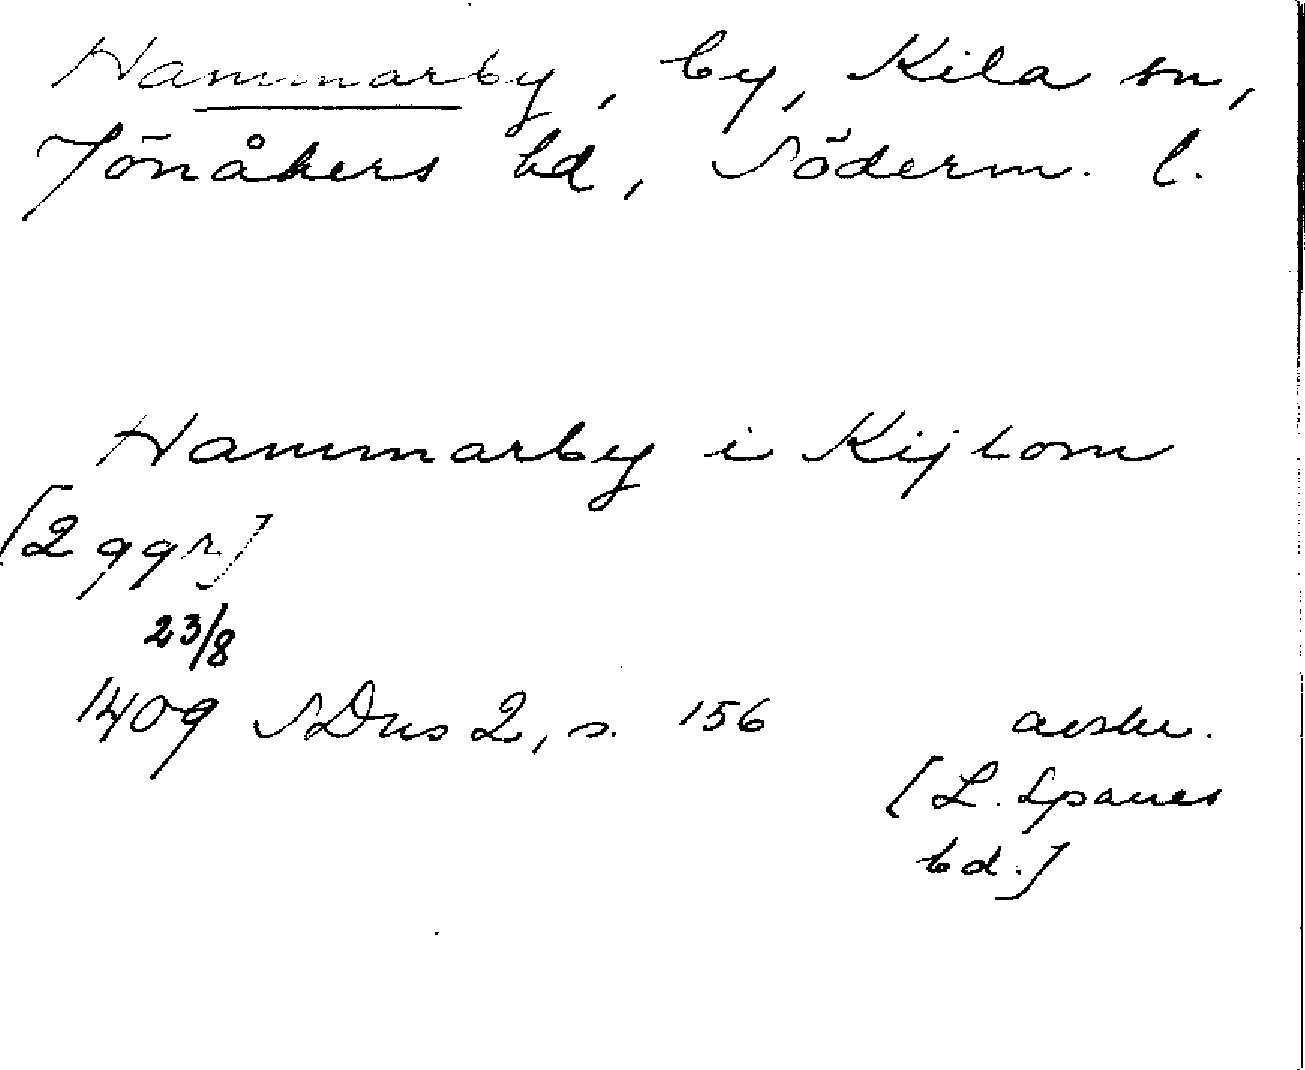 Hammarby, by, Kila sn,
Jönåkers hd, Söderm. l.
Hammarby i Kijlom
[2 ggr]
23/8
1409 SDns 2, s. 156 avskr.
[L. Sparres
bd.]